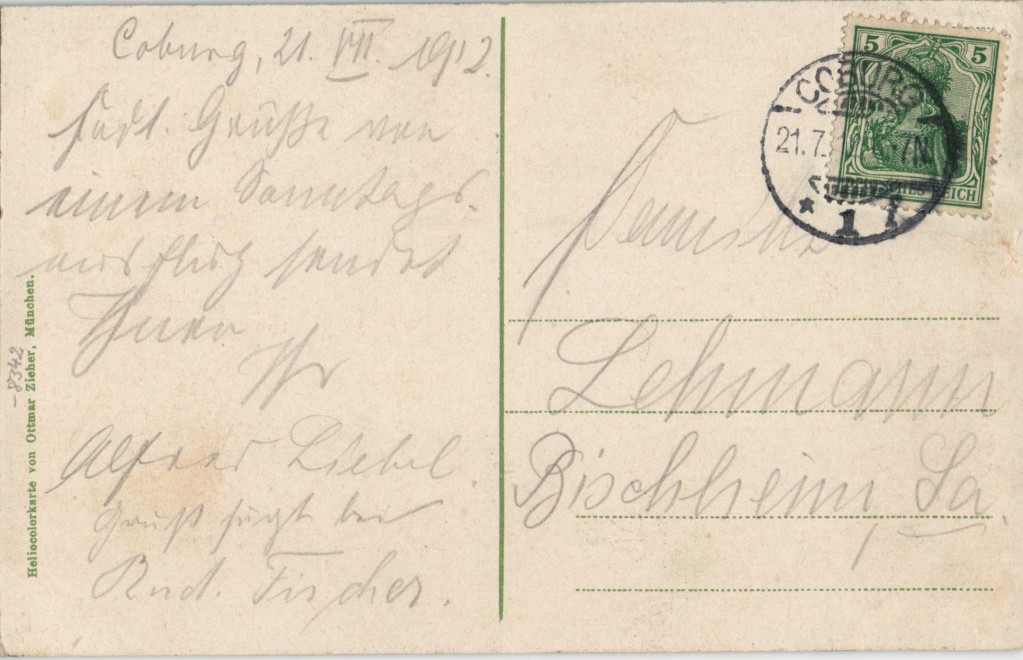 Coburg, 21. VII. 1912.
Grüße von
einem Sonntags-
ausflug sendet
Ihnen
Ihr
Alfred Liebel.
Gruß fügt bei
Rud. Fischer.
Heliocolorkarte von Ottmar Zieher, München.
-8342
5 5
COBURG
21.7. 6-7N.
* 1 *
Familie
Lehmann
Bischheim, Sa.